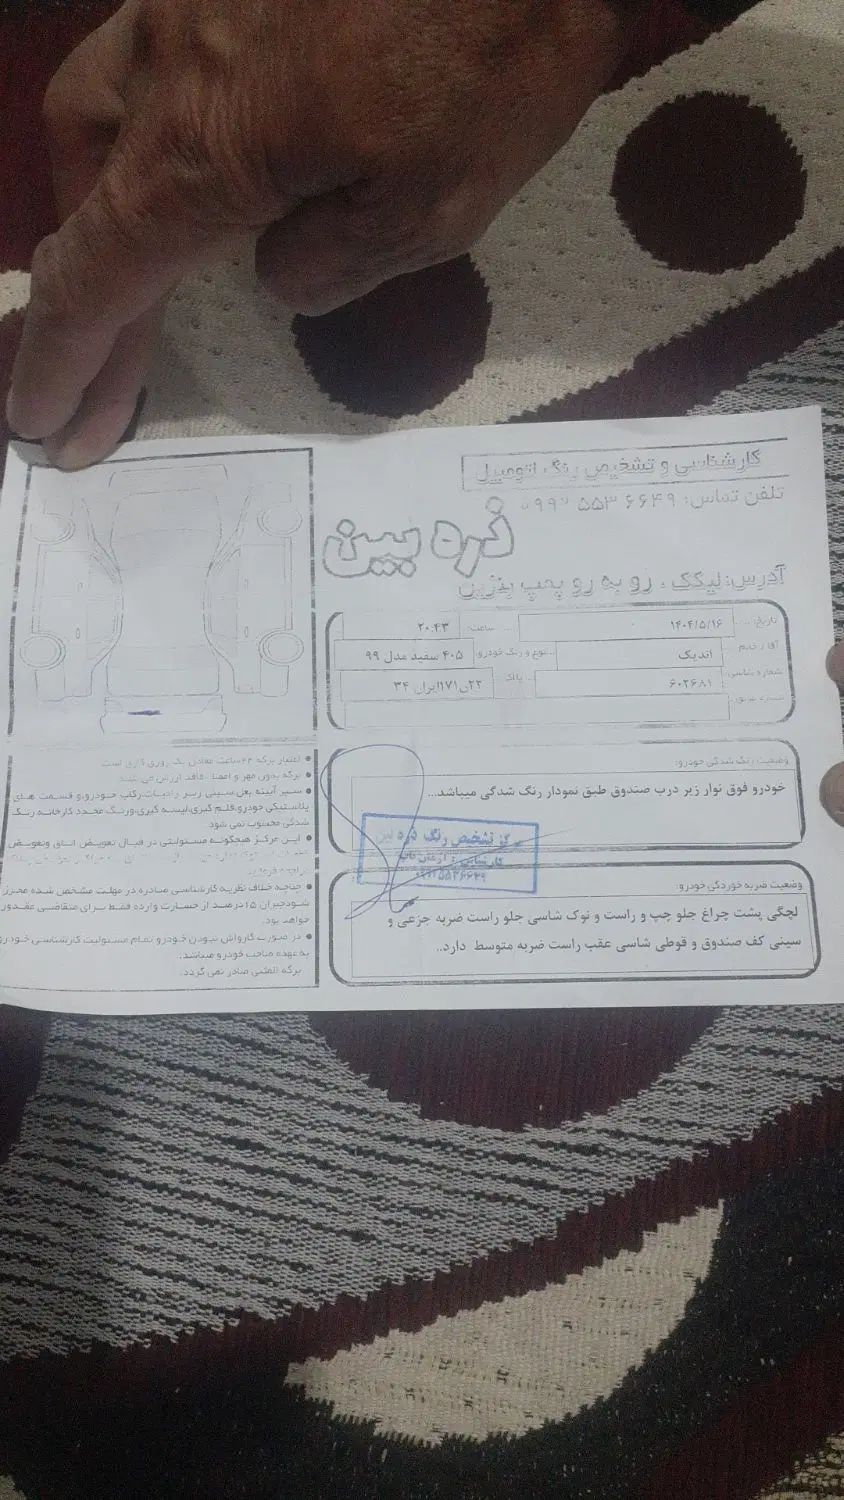 کارشناسی و تشخیص رنگ اتومبیل
تلفن تماس: ۵۵۳۶۶۴۹
ذره بین
آدرس: لیکک، رو به رو پمپ بنزین
تاریخ: ۱۴۰۴/۵/۱۶ ساعت: ۲۰:۴۳
آقا / خانم اندیک نوع و رنگ خودرو: ۴۰۵ سفید مدل ۹۹
شماره شاسی: ۶۰۲۶۸۱ پلاک: ۲۲ی۱۷۱ایران ۳۴
وضعیت رنگ شدگی خودرو:
خودرو فوق نوار زیر درب صندوق طبق نمودار رنگ شدگی میباشد...
مرکز تشخیص رنگ ذره بین
وضعیت ضربه خوردگی خودرو:
لچگی پشت چراغ جلو چپ و راست و نوک شاسی جلو راست ضربه جزعی و
سینی کف صندوق و قوطی شاسی عقب راست ضربه متوسط دارد..
اعتبار برگه ۲۴ ساعت معادل یک روز کاری است
برگه بدون مهر و امضا فاقد ارزش می باشد
سپر آیینه بغل،سینی زیر رادیات،رکاب خودرو،و قسمت های
پلاستیکی خودرو،قلم گیری،لیسه گیری،ورنگ مجدد کارخانه رنگ
شدگی محسوب نمی شود
این مرکز هیچگونه مسئولیتی در قبال تعویض اتاق وتعویض
چنانچه خلاف نظریه کارشناسی صادره در مهلت مشخص شده محرز
شود،جبران ۱۵درصد از خسارت وارده فقط برای متقاضی مقدور
خواهد بود.
در صورت کارواش نبودن خودرو تمام مسئولیت کارشناسی خودرو
به عهده صاحب خودرو میباشد.
برگه المثنی صادر نمی گردد.